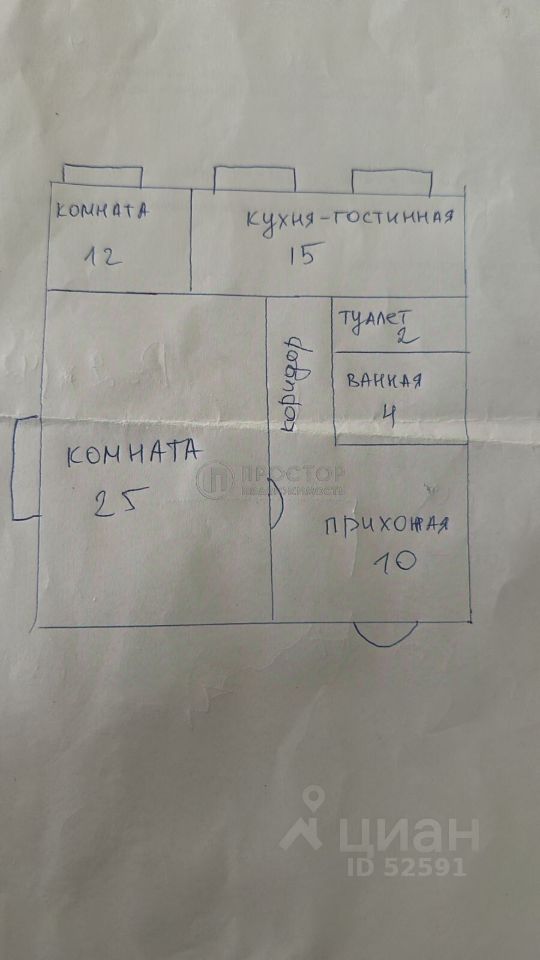 КОМНАТА
12
КУХНЯ-ГОСТИННАЯ
15
ТУАЛЕТ
2
коридор
ВАННАЯ
4
КОМНАТА
25
ПРОСТОР
НЕДВИЖИМОСТЬ
ПРИХОЖАЯ
10
циан
ID 52591